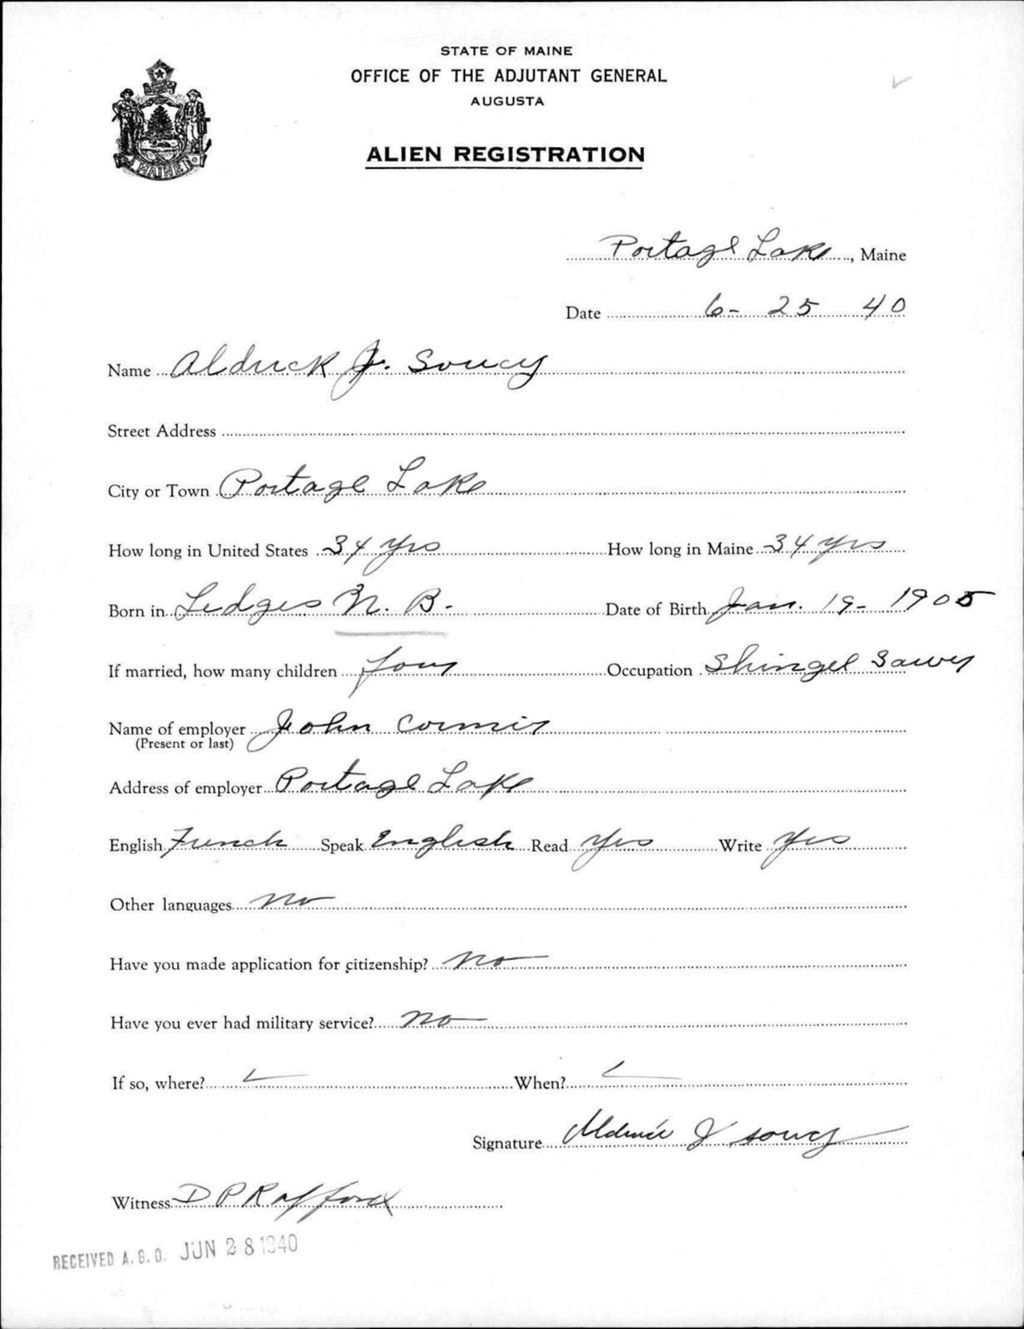 STATE OF MAINE
OFFICE OF THE ADJUTANT GENERAL
AUGUSTA
ALIEN REGISTRATION
MAINE
Portage Lake, Maine
Date 6- 25 40
Name Aldrick J. Soucy
Street Address
City or Town Portage Lake
How long in United States 34 yrs How long in Maine 34 yrs
Born in Ledges N. B. Date of Birth Jan. 19- 1905
If married, how many children four Occupation Shingel Sawer
Name of employer John Cormir
(Present or last)
Address of employer Portage Lake
English French Speak English Read Yes Write Yes
Other languages no
Have you made application for citizenship? no
Have you ever had military service? no
If so, where? When?
Signature J Soucy
Witness D P Rafford
RECEIVED A.G.O. JUN 28 1940